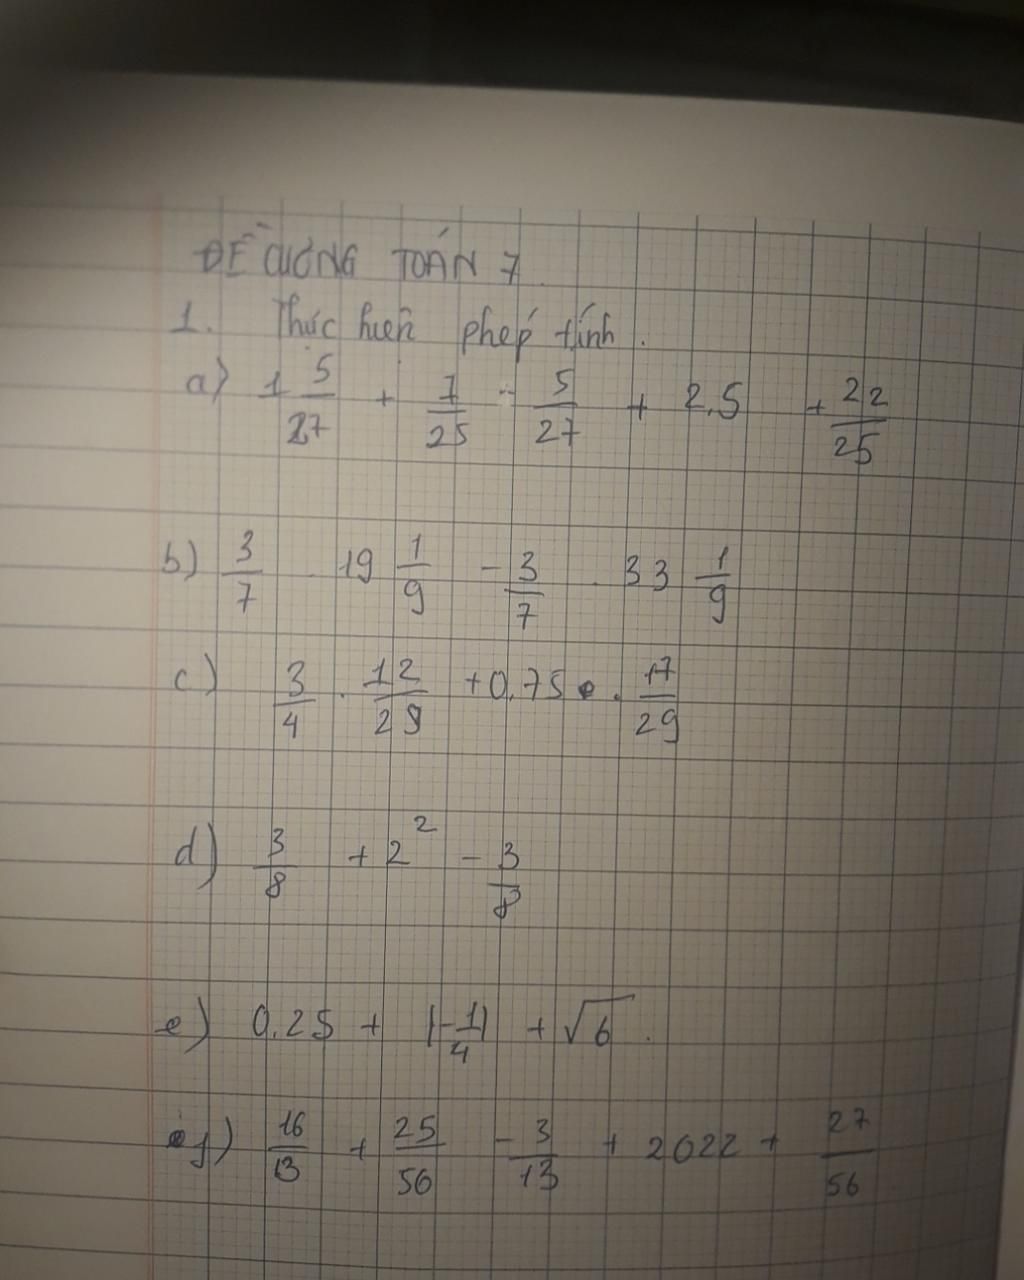 ĐỀ CƯƠNG TOÁN 7
1. Thức hiện phép tính.
a) 1 5/27 + 7/25 - 5/27 + 2,5 + 22/25
b) 3/7 . 19 1/9 - 3/7 . 33 1/9
c) 3/4 . 12/29 + 0,75 . 17/29
d) 3/8 + 2² - 3/8
e) 0,25 + |-1/4| + √6.
f) 16/13 + 25/56 - 3/13 + 2022 + 27/56